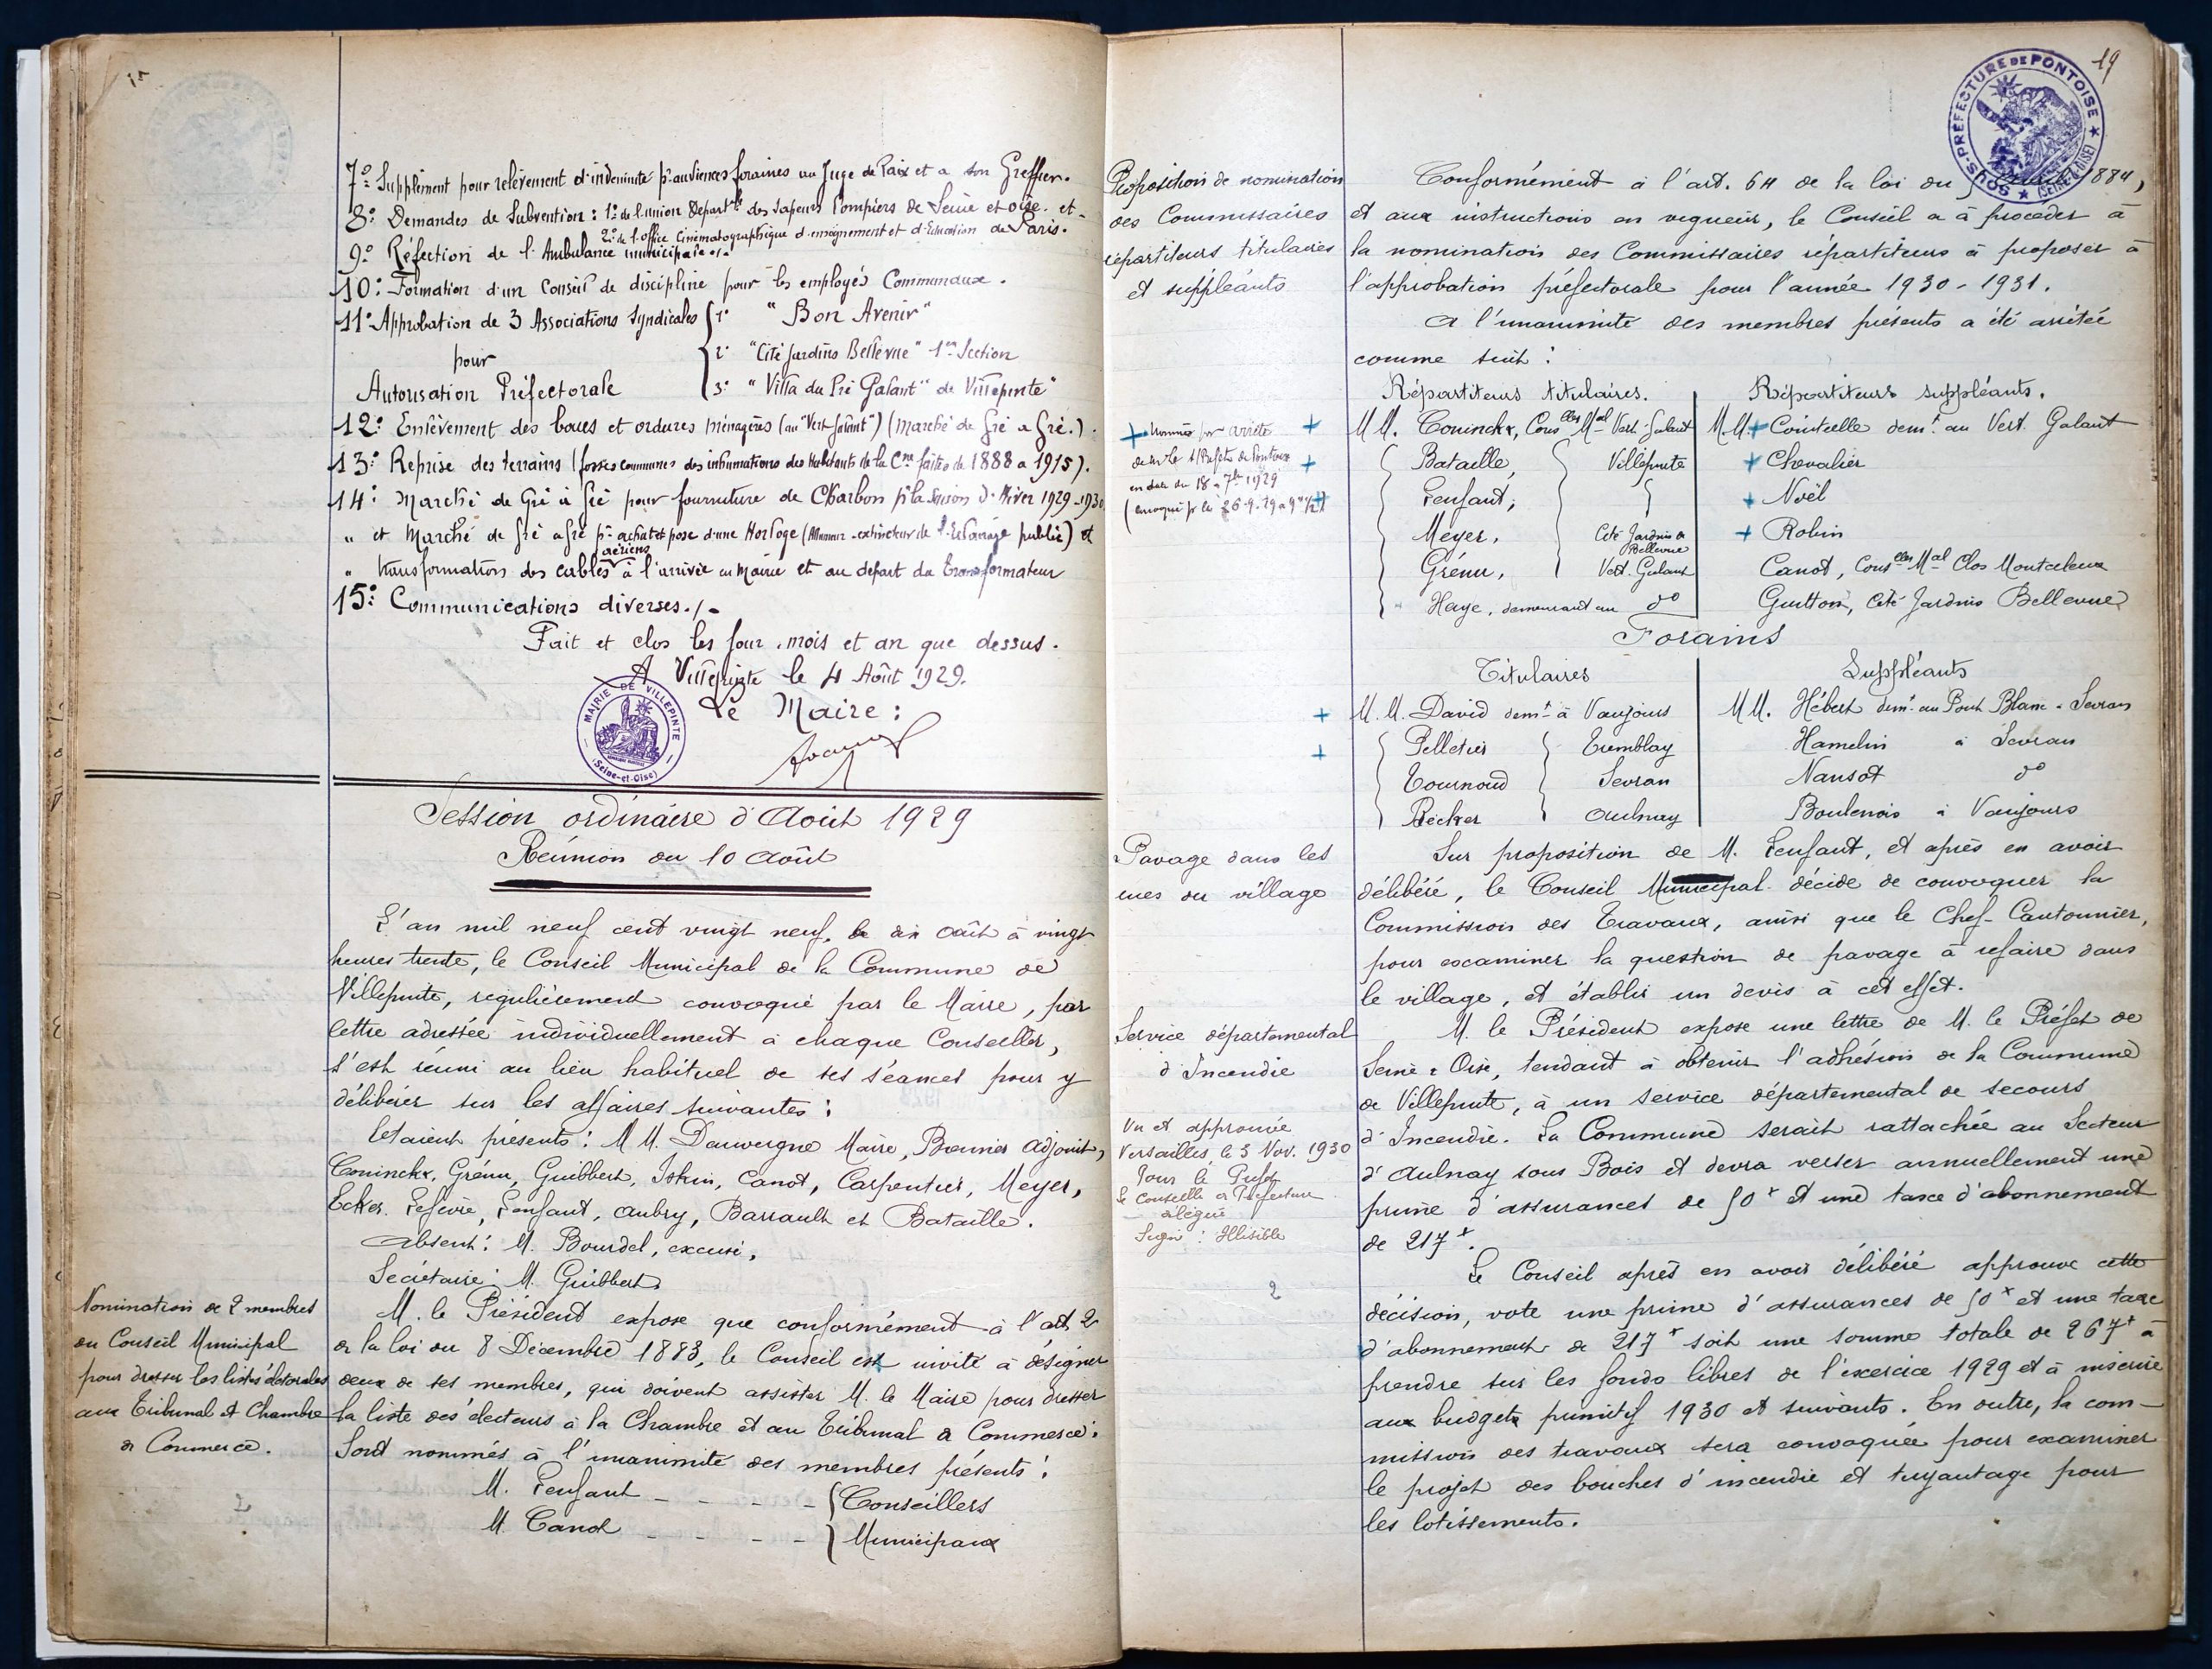 7º Supplément pour relèvement d'indemnité pr audiences foraines au Juge de Paix et a son Greffier.
8º Demandes de Subvention : 1º de l'union Départle des Sapeurs Pompiers de Seine et oise. et
2º de l'office Cinématographique d'enseignement et d'Education de Paris.
9º Réfection de l'Ambulance municipale ./.
10º Formation d'un Conseil de discipline pour les employés Communaux.
11º Approbation de 3 Associations Syndicales 1º "Bon Avenir"
pour 2º "Cité Jardins Bellevue" 1re Section
Autorisation Préfectorale 3º "Villa du Pré Galant" de Villepinte"
12º Enlèvement des boues et ordures ménagères (au "Vert-Galant") (marché de gré a gré.).
13º Reprise des terrains (fosses communes des inhumations des habitants de la Cne faites de 1888 a 1915).
14º Marché de Gré à gré pour fourniture de Charbon pr la saison d'Hiver 1929-1930
" et Marché de gré a gré pr achat et pose d'une Horloge (Allumeur-extincteur de l'Eclairage public) et
" transformations des cables aériens à l'arrivée en Mairie et au départ du Transformateur
15º Communications diverses./-
Fait et clos les jour, mois et an que dessus.
A Villepinte le 4 Août 1929.
Le Maire :
MAIRIE DE VILLEPINTE
(Seine-et-Oise)
Session ordinaire d'Août 1929
Réunion du 10 Août
L'an mil neuf cent vingt neuf, le dix Août à vingt
heures trente, le Conseil Municipal de la Commune de
Villepinte, régulièrement convoqué par le Maire, par
lettre adressée individuellement à chaque Conseiller,
s'est réuni au lieu habituel de ses séances pour y
délibérer sur les affaires suivantes :
Etaient présents : M M. Dauvergne Maire, Brennier adjoint,
Coninckx, Grénu, Guibbert, Canot, Carpentier, Meyer,
Ecker, Lefèvre, Lenfant, Aubry, Barrault et Bataille.
Absent : M. Bourdel, excusé.
Secrétaire : M. Guibbert
Nomination de 2 membres
du Conseil Municipal
pour dresser les listes électorales
aux Tribunal et Chambre
de Commerce.
M. le Président expose que conformément à l'art. 2
de la loi du 8 Décembre 1883, le Conseil est invité à désigner
deux de ses membres, qui doivent assister M. le Maire pour dresser
la liste des électeurs à la Chambre et au Tribunal de Commerce :
Sont nommés à l'unanimité des membres présents :
M. Lenfant - - - - Conseillers
M. Canot - - - - Municipaux
19
SOUS-PRÉFECTURE DE PONTOISE
(SEINE & OISE)
Proposition de nomination
des Commissaires
répartiteurs titulaires
et suppléants
Conformément à l'art. 64 de la loi du 5 1884,
et aux instructions en vigueur, le Conseil a à procéder à
la nomination des Commissaires répartiteurs à proposer à
l'approbation préfectorale pour l'année 1930-1931.
A l'unanimité des membres présents a été arrêtée
comme suit :
Répartiteurs titulaires. Répartiteurs suppléants.
+ nommés par arrêté
de M le S/Préfet de Pontoise
en date du 18 7bre 1929
M M. Coninckx, Conseller Mal Vert-Galant M.M. + Cointelle demt au Vert Galant
Bataille, Villepinte + Chevalier
Lenfant, + Noël
Meyer, Cité Jardins de Bellevue + Robin
Grénu, Vert-Galant Canot, Conseller Mal Clos Montceleux
Haye, demeurant au do Guitton, Cité Jardins Bellevue
Forains
Titulaires Suppléants
+ M.M. David demt à Vaujours MM. Hébert demt au Pont Blanc - Sevran
+ Pelletier Tremblay Hamelin à Sevran
Tournoud Sevran Nansot do
Becker Aulnay Boulenois à Vaujours
Pavage dans les
rues du village
Sur proposition de M. Lenfant, et après en avoir
délibéré, le Conseil Municipal décide de convoquer la
Commission des Travaux, ainsi que le Chef-Cantonnier,
pour examiner la question de pavage à refaire dans
le village, et établir un devis à cet effet.
Service départemental
d'Incendie
M. le Président expose une lettre de M. le Préfet de
Seine & Oise, tendant à obtenir l'adhésion de la Commune
de Villepinte, à un service départemental de secours
d'Incendie. La Commune serait rattachée au Secteur
d'Aulnay sous Bois et devra verser annuellement une
prime d'assurances de 50f et une taxe d'abonnement
de 217f.
Vu et approuvé
Versailles, le 5 Nov. 1930
Pour le Préfet
Le Conseiller de Préfecture
délégué
Signé : Illisible
2
Le Conseil après en avoir délibéré approuve cette
décision, vote une prime d'assurances de 50f et une taxe
d'abonnement de 217f soit une somme totale de 267f à
prendre sur les fonds libres de l'exercice 1929 et à inscrire
aux budgets primitifs 1930 et suivants. En outre, la com-
mission des travaux sera convoquée pour examiner
le projet des bouches d'incendie et tuyautage pour
les lotissements.